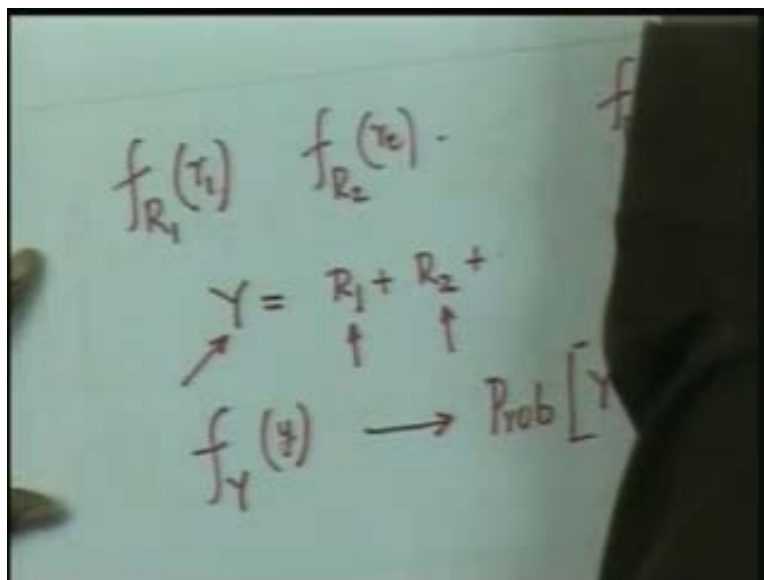 f_{R_1}(r_1) f_{R_2}(r_2) . f
Y = R_1 + R_2 +
f_Y(y) → Prob [Y